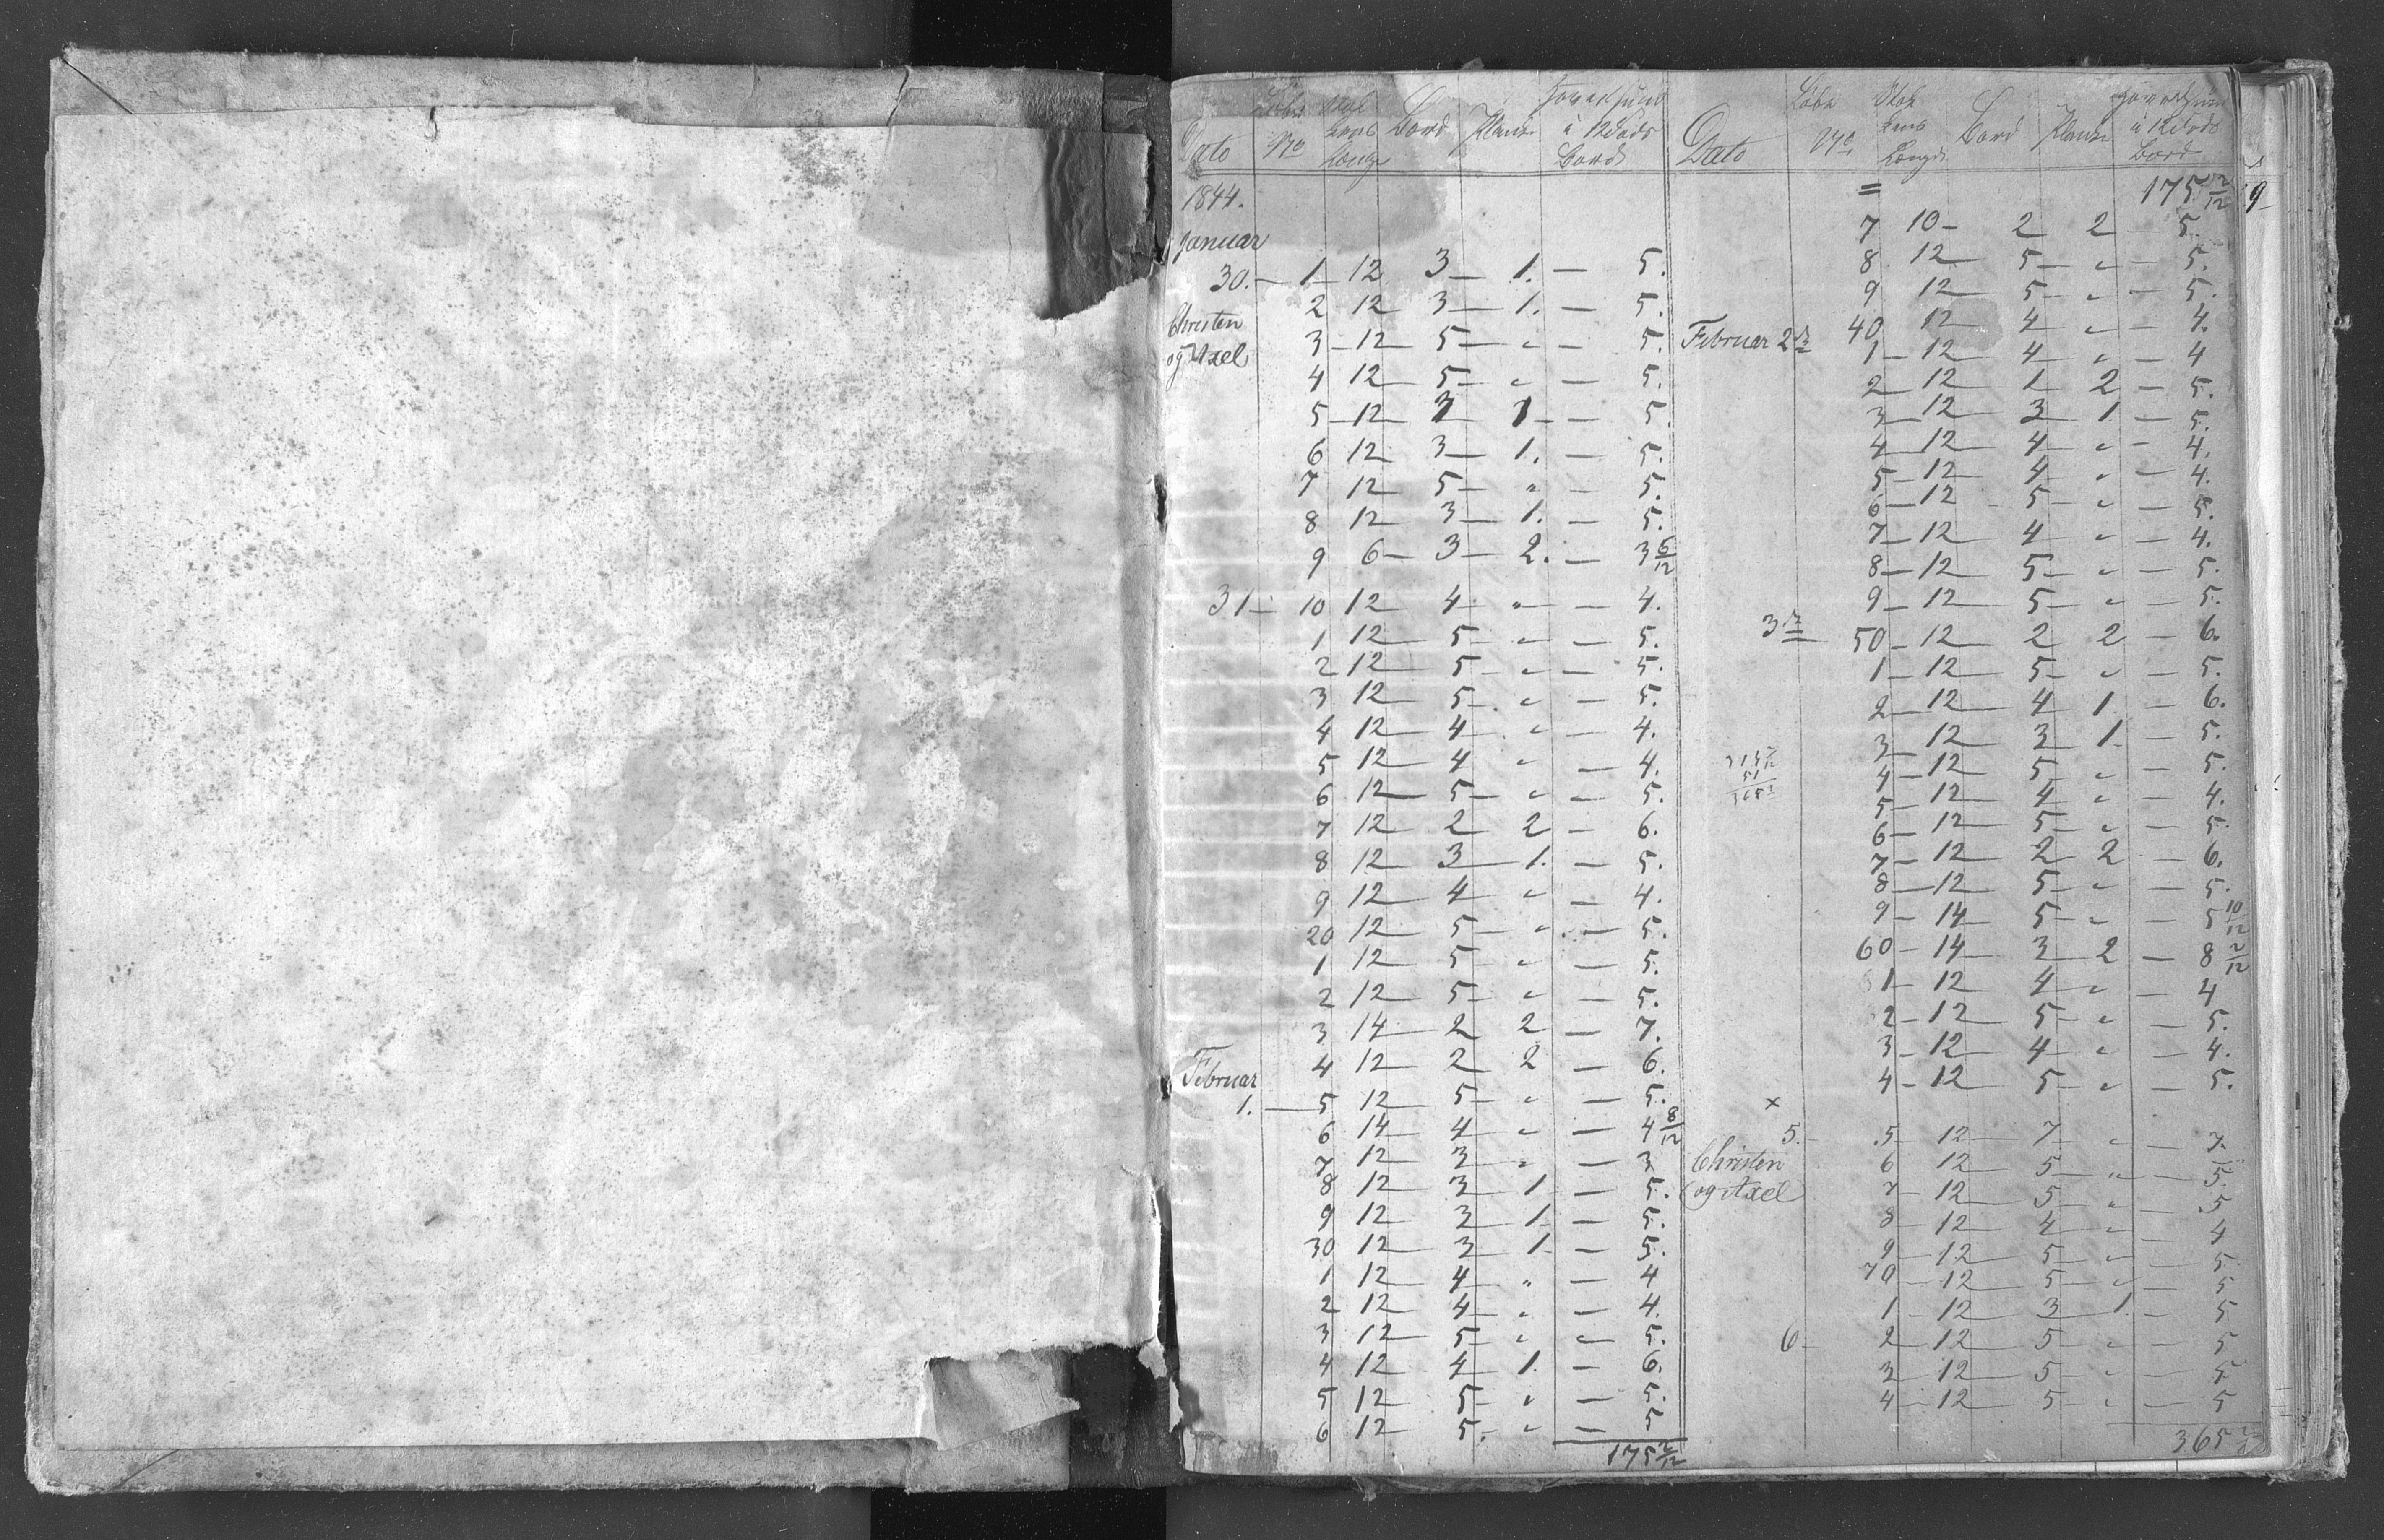 Dato
Løbe No
Stok kens Længde
Bord
Planker
Hovedsum à 12 Fods Bord
1844.
Januar
30. — 1 12 3 — 1. — 5.
2 12 3 — 1. — 5.
Christen
3 — 12 5 — " — 5.
og Axel
4 12 5 — " — 5.
5 — 12 3 1 — 5.
6 12 3 — 1. — 5.
7 12 5 — " — 5.
8 12 3 — 1. — 5.
9 6 — 3 — 2. — 3 6/12
31 — 10 12 4 " — 4.
1 12 5 — " — 5.
2 12 5 — " — 5.
3 12 5 — " — 5.
4 12 4 — " — 4.
5 12 4 " — 4.
6 12 5 — " — 5.
7 12 2 2 — 6.
8 12 3 — 1. — 5.
9 12 4 — " — 4.
20 12 5 — " — 5.
1 12 5 — " — 5.
2 12 5 — " — 5.
3 14 — 2 2 — 7.
4 12 2 2 — 6.
Februar
1. — 5 12 5 — " — 5.
6 14 4 — " — 4 8/12
7 12 3 " — 3
8 12 3 — 1 — 5.
9 12 3 — 1. — 5.
30 12 3 1 — 5.
1 12 4 — " — 4
2 12 4 — " — 4.
3 12 5 — " — 5.
4 12 4 — 1. — 6.
5 12 5 — " — 5.
6 12 5. — " — 5
175 2/12
Dato
Løbe No.
Stok kens Længde
Bord
Planker
Hovedsum à 12 Fods Bord
= 175 2/12
7 10 — 2 2 — 5.
8 12 5 — " — 5.
9 12 5 — " — 5.
40 12 4 " — 4.
Februar 2
1 — 12 4 " — 4
2 — 12 1 2 — 5.
3 — 12 3 1 — 5.
4 — 12 4 " — 4.
5 — 12 4 " — 4.
6 — 12 5 — " — 5.
7 — 12 4 " — 4.
8 — 12 5 — " — 5.
9 — 12 5 — " — 5.
3 50 — 12 2 2 — 6.
1 — 12 5 — " — 5.
2 — 12 4 1 — 6.
3 — 12 3 1. — 5.
4 — 12 5 — " — 5.
5 — 12 4 " — 4.
6 — 12 5 — " — 5
7 — 12 2 2 — 6.
8 — 12 5 — " — 5.
9 — 14 5 — " — 5 10/12
60 — 14 3 2 — 8 2/12
1 — 12 4 — " — 4
2 — 12 5 — " — 5.
3 — 12 4 " — 4.
4 — 12 5 — " — 5.
x
5. 5 — 12 7 — " — 7.
Christen
6 12 5 — " — 5.
og Axel
7 — 12 5 — " — 5
8 — 12 4 — " — 4
9 — 12 5 — " — 5
70 — 12 5 — " — 5
1 — 12 3 1. — 5
6 — 2 — 12 5 — " — 5
3 — 12 5 — " — 5
4 — 12 5 — " — 5
365 2/12